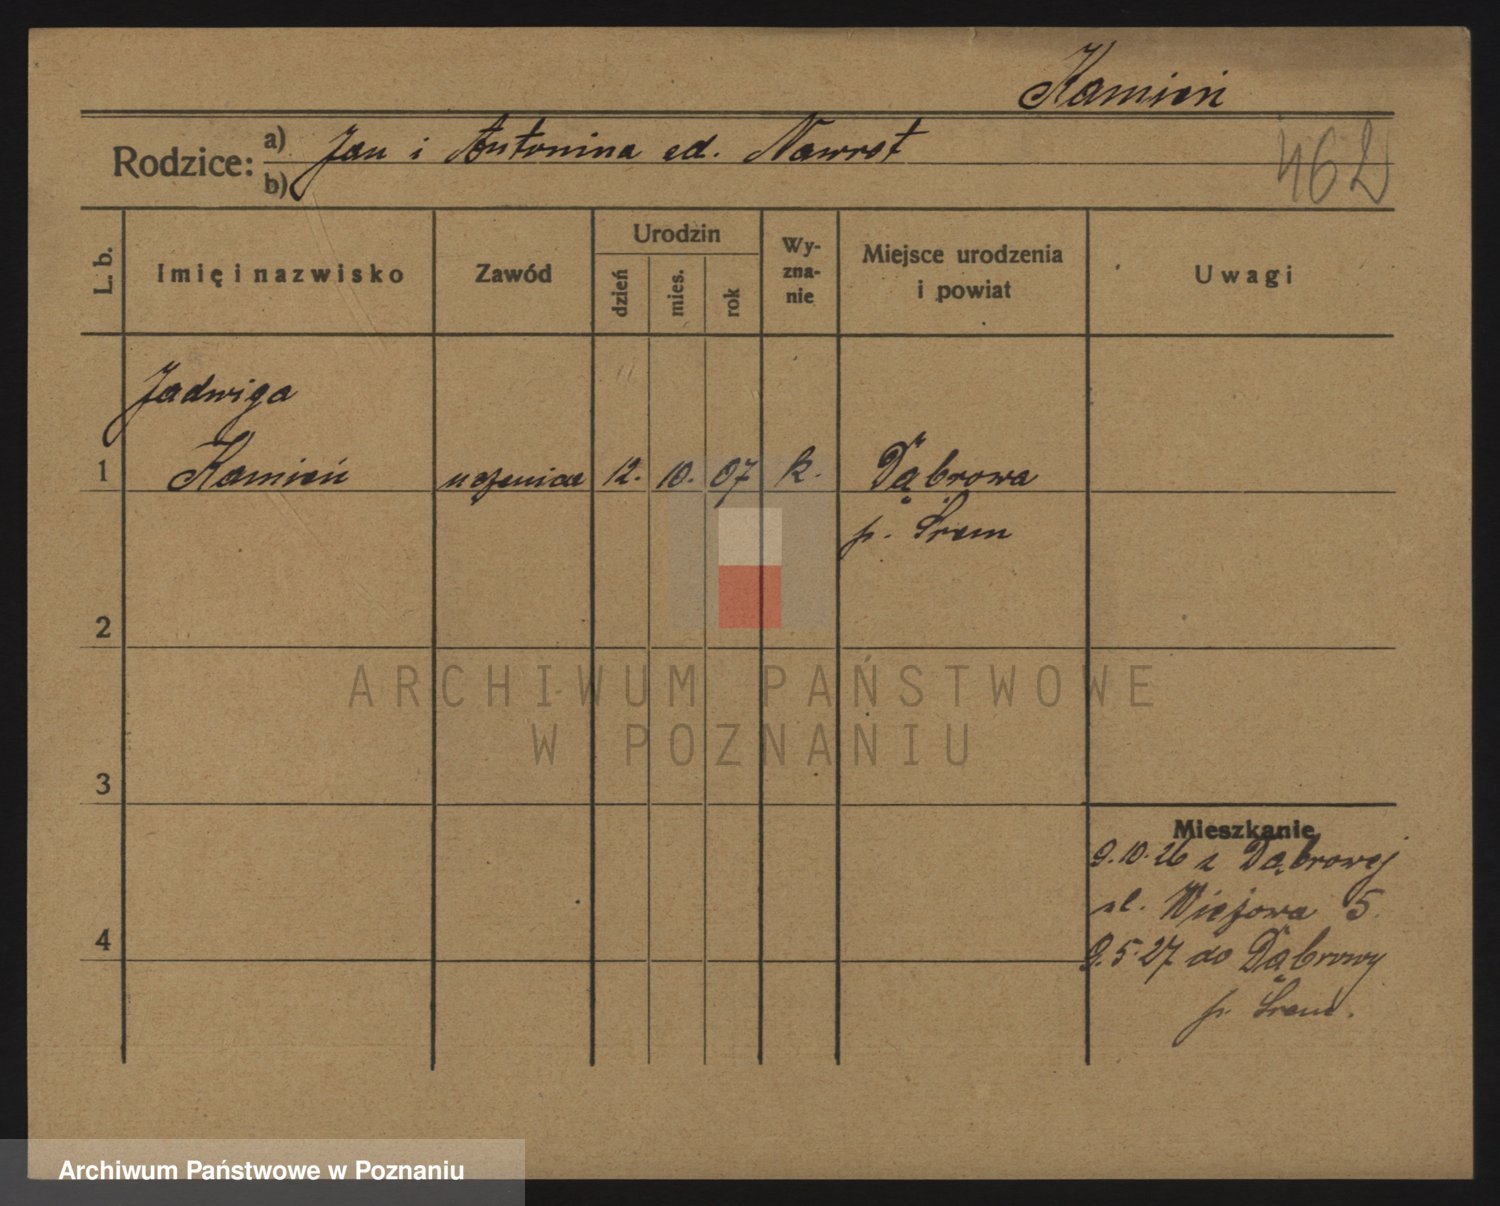 Kamień
Rodzice: a) Jan i Antonina ed. Nawrot
b)
462
L. b. Imię i nazwisko Zawód Urodzin dzień mies. rok Wy-zna-nie Miejsce urodzenia i powiat Uwagi
Jadwiga
1 Kamień uczenica 12. 10. 07 k. Dąbrowa
p. Śrem
2
ARCHIWUM PAŃSTWOWE
W POZNANIU
3
Mieszkanie
9.10.26 z Dąbrowej
ul. Wiejowa 5.
4
9.5.27 do Dąbrowy
p. Śrem.
Archiwum Państwowe w Poznaniu